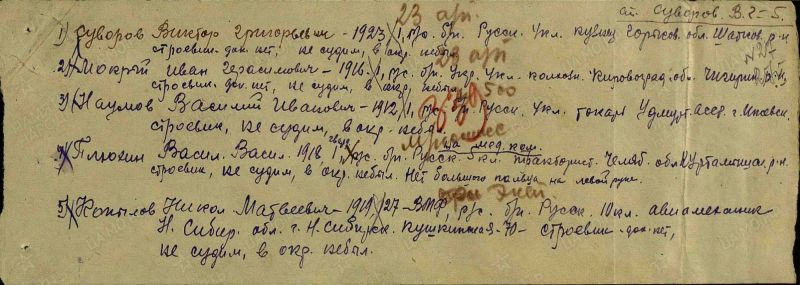 ст. Суворов. В. Г-5.
23 арт
1) Суворов Виктор Григорьевич - 1923/1, р/с. бр. Русск. 4кл. кузнец Горьков. обл. Шатков. р-н.
строевик. док. нет, не судим, в окр. не был.
23 арт
2) Мокрый Иван Герасимович - 1916/1, р/с. бр. Укр. 4кл. колхозн. Кировоград. обл. Чигирин. р-н
строевик. док. нет, не судим, в окр. не был.
500
3) Наумов Василий Иванович - 1912/1, р/с. бр. Русск. 4кл. токарь Удмурт АССР. г. Ижевск.
строевик, не судим, в окр. не был
на мед. ком.
4) Плюхин Васил. Васил. 1918, р/с. бр. Русск. 5кл. тракторист. Челяб. обл. р-н.
строевик, не судим, в окр. не был. Нет большого пальца на левой руке.
5) Копылов Никол Матвеевич - 1919/27 - ВМФ, р/с. бр. Русск. 10кл. авиамеханик
Н. Сибир. обл. г. Н. Сибирск. Пушкинская - 70 - строевик. док. нет,
не судим, в окр. не был.